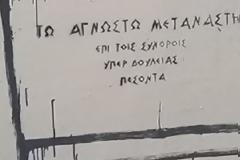 ΤΩ ΑΓΝΩΣΤΩ ΜΕΤΑΝΑΣΤΗ
ΕΠΙ ΤΟΙΣ ΣΥΝΟΡΟΙΣ
ΥΠΕΡ ΔΟΥΛΕΙΑΣ
ΠΕΣΟΝΤΑ